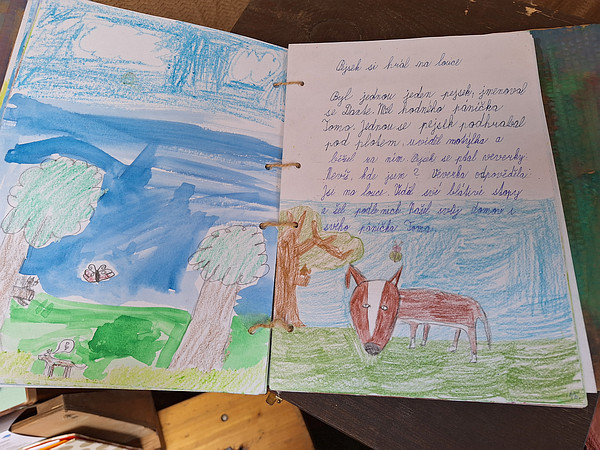 Pejsek si hrál na louce
Byl jednou jeden pejsek, jmenoval
se Darte. Měl hodného páníčka
Toma. Jednou se pejsík podhrabal
pod plotem, uviděl motýlka a
běžel za ním. Pejsek se ptal veverky
kde jsem? Veverka odpověděla
Jsi na louce. Viděl své blátivé stopy
a šel podle nich. Našel svůj domov i
svého páníčka Toma.